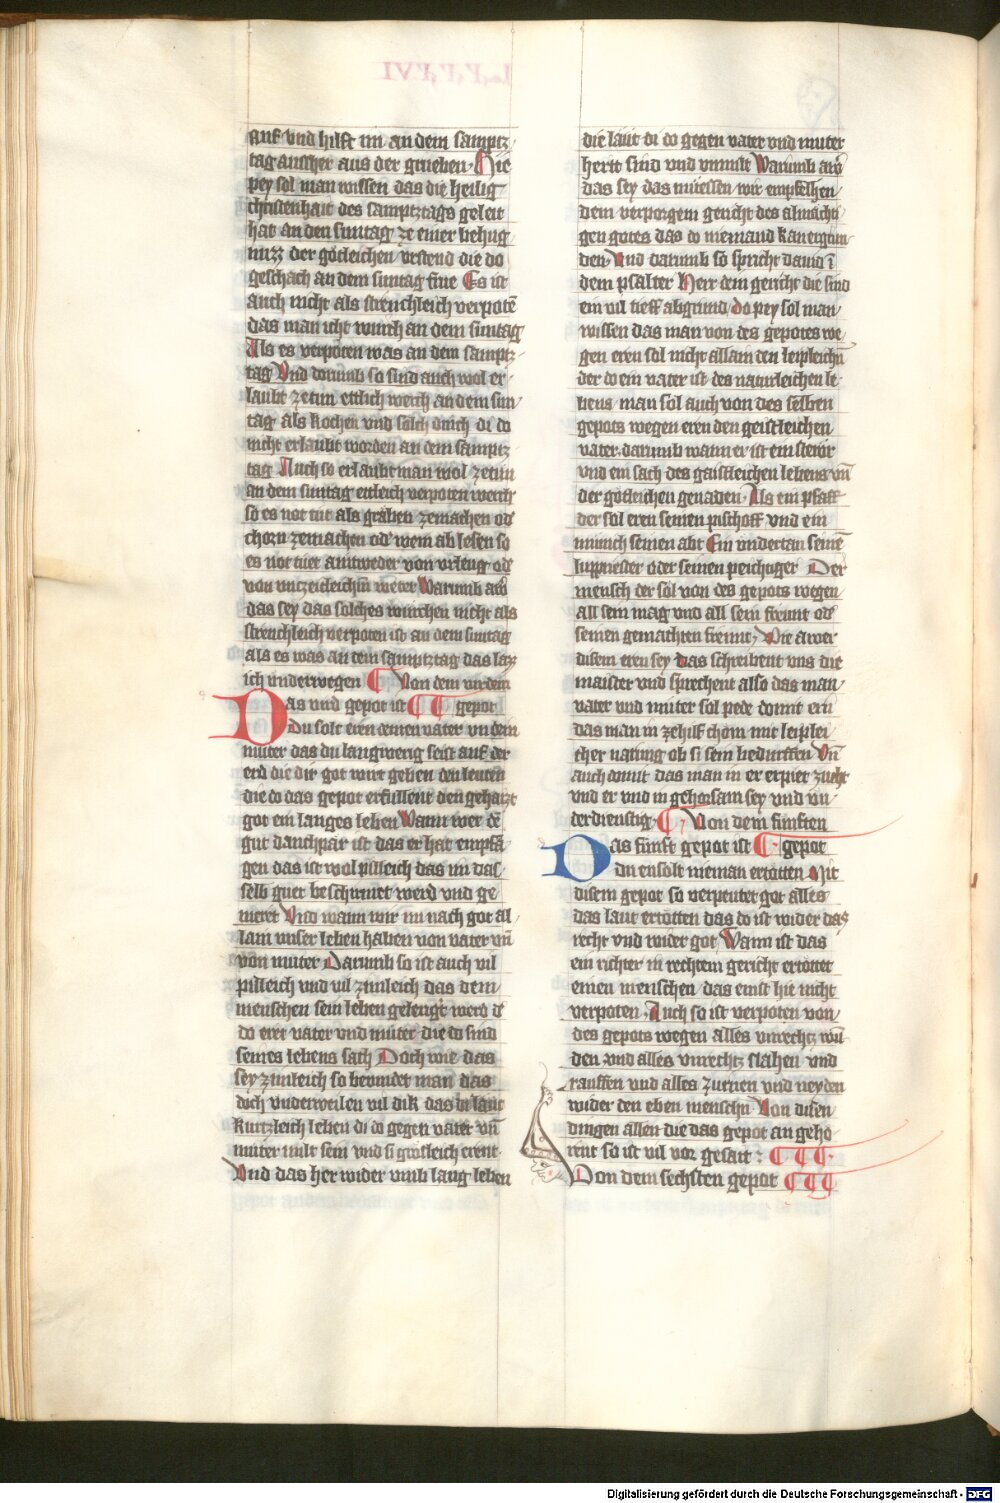 auf vnd hilft im an dem sampcz
tag auscher aus der grueben. Hie
pey sol man wissen das die heilig
christenhait des sampcztags geleit
hat an den suntag ze einer behug
nuzz der gotleichen vrstend die do
geschach an dem suntag frue Es ist
auch nicht als strenchleich verpotē
das man icht wurch an dem suntag
Als es verpoten was an dem sampcz
tag Vnd dorumb so sind auch wol er
laubt zetun ettlich werch an dem sun
tag als kochen vnd solch dinch di do
nicht erlaubt worden an dem sampcz
tag Auch so erlaubt man wol zetun
an dem suntag ettleich verpoten werch
so es not tut als graben zemachen od
chorn zemachen od wein ab lesen so
es not tuet antweder von vrleug od
von vnczeitleichm weter Warumb aw
das sey das solches wurchen nicht als
strenchleich verpoten ist an dem suntag
als es was an dem sampcztag das lazz
ich vnderwegen Von dem virdem
Das vird gepot ist gepot
Du solt eren deinen vater vn dein
muter das du langwerig seist auf der
erd die dir got wirt geben den leuten
die do das gepot erfullent den gehaizt
got ein langes leben Wann wer dē
gut danchpar ist das er hat empfā
gen das ist wol pilleich das im das
selb guet beschirmet werd vnd ge
meret Vnd wann wir nu nach got al
lain vnser leben haben von vater vn̄
von muter Darumb so ist auch vil
pilleich vnd vil zimleich das dem
menschen sein leben gelengt werd d
do eret vater vnd muter die do sind
seines lebens sach Doch wie das
sey zimleich so bevindet man das
doch vnderweilen vil dik das di laut
kurtzleich leben di do gegen vater vn̄
muter milt sein vnd si grosleich erent
Vnd das her wider vmb lang leben
die laut di do gegen vater vnd muter
hertt sind vnd vnmilt Warumb aw
das sey das muessen wir empfelhen
dem verporgem gericht des almachti
gen gotes das do niemand kan ergrun
den Vnd darumb so spricht dauid ī
dem psalter Herr dein gericht die sind
ein vil tieff abgrund do pey sol man
wissen das man von des gepotes we
gen eren sol nicht allain den leipleichn̄
der do ein vater ist des naturleichen le
bens man sol auch von des selben
gepots wegen eren den geistleichen
vater darumb wann er ist ein stewr
vnd ein sach des gaistleichen lebens vn̄
der gotleichen genaden. Als ein pfaff
der sol eren seinen pischoff vnd ein
munich seinen abt Ein vndertan seinē
luppriester oder seinen peichtiger Der
mensch der sol von des gepots wegen
all sein mag vnd all sein freunt od
seinen gemachten freunt, Wie awer
disem eren sey das schreibent vns die
maister vnd sprechent also das man
vater vnd muter sol pede domit ern
das man in zehilf chom mit leiplei
cher narung ob si sein bedurffen Vn̄
auch domit das man in er erpiet zucht
vnd er vnd in gehorsam sey vnd vn
derdienstig. Von dem funften
Das funft gepot ist gepot
du ensolt nieman ertotten Mit
disem gepot so verpeutet got alles
das laut ertotten das do ist wider das
recht vnd wider got Wann ist das
ein richter in rechtem gericht ertottet
einen menschen das enist hie nicht
verpoten. Auch so ist verpoten von
des gepots wegen alles vnrechtz wū
den vnd alles vnrechtz slahen vnd
rauffen vnd alles zurnen vnd neyden
wider den eben menschn Von disen
dingen allen die das gepot an geho
rent so ist vil vor gesait:
Von dem sechsten gepot
Digitalisierung gefördert durch die Deutsche Forschungsgemeinschaft - DFG